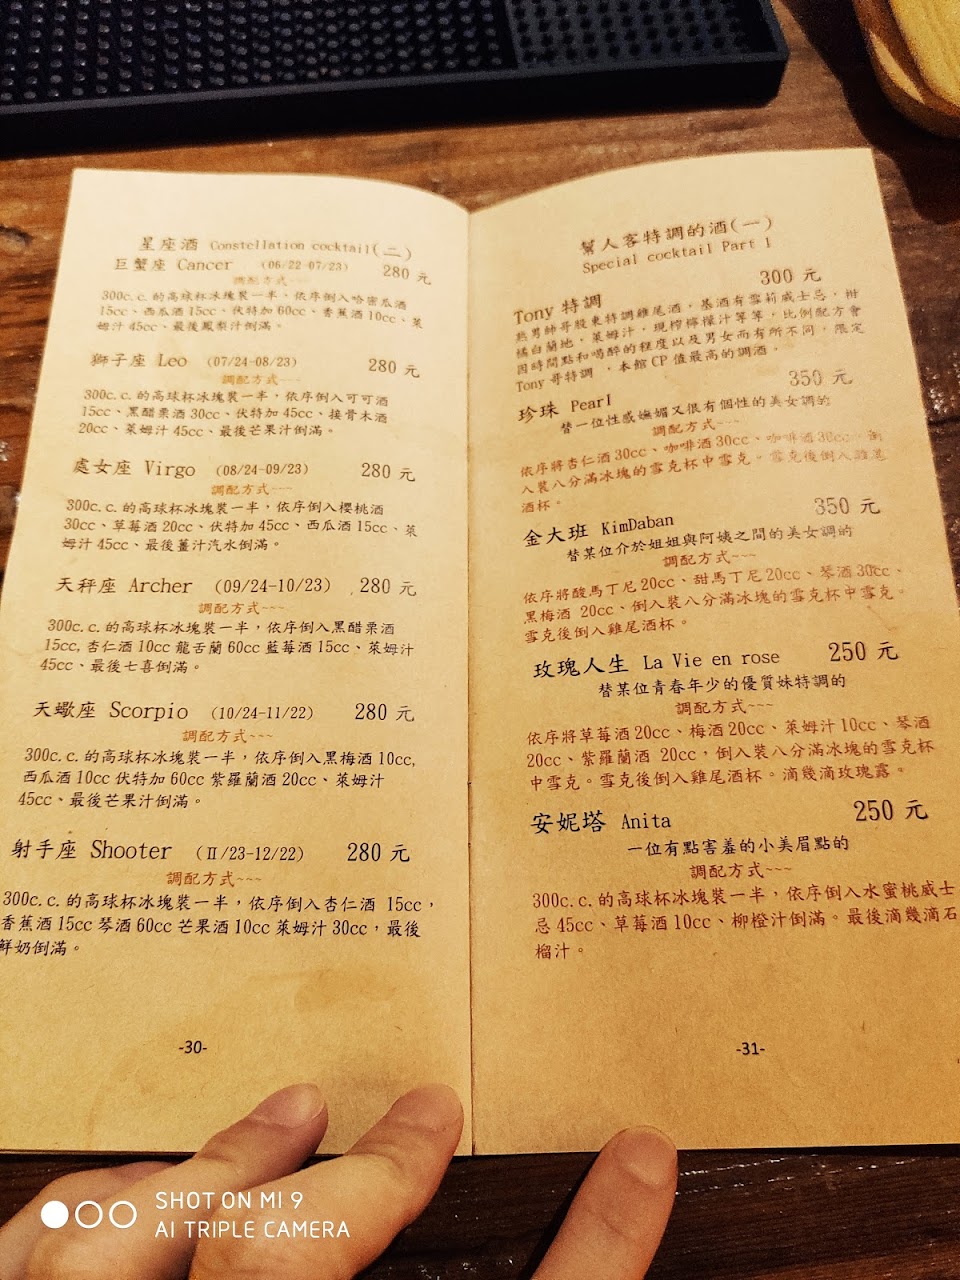 星座酒 Constellation cocktail(二)
巨蟹座 Cancer (06/22-07/23) 280 元
調配方式~~~
300c.c.的高球杯冰塊裝一半，依序倒入哈密瓜酒
15cc、西瓜酒 15cc、伏特加 60cc、香蕉酒 10cc、萊
姆汁 45cc、最後鳳梨汁倒滿。
獅子座 Leo (07/24-08/23) 280 元
調配方式~~~
300c.c.的高球杯冰塊裝一半，依序倒入可可酒
15cc、黑醋栗酒 30cc、伏特加 45cc、接骨木酒
20cc、萊姆汁 45cc、最後芒果汁倒滿。
處女座 Virgo (08/24-09/23) 280 元
調配方式~~~
300c.c.的高球杯冰塊裝一半，依序倒入櫻桃酒
30cc、草莓酒 20cc、伏特加 45cc、西瓜酒 15cc、萊
姆汁 45cc、最後薑汁汽水倒滿。
天秤座 Archer (09/24-10/23) 280 元
調配方式~~~
300c.c.的高球杯冰塊裝一半，依序倒入黑醋栗酒
15cc, 杏仁酒 10cc 龍舌蘭 60cc 藍莓酒 15cc、萊姆汁
45cc、最後七喜倒滿。
天蠍座 Scorpio (10/24-11/22) 280 元
調配方式~~~
300c.c.的高球杯冰塊裝一半，依序倒入黑梅酒 10cc,
西瓜酒 10cc 伏特加 60cc 紫羅蘭酒 20cc、萊姆汁
45cc、最後芒果汁倒滿。
射手座 Shooter (Ⅱ/23-12/22) 280 元
調配方式~~~
300c.c.的高球杯冰塊裝一半，依序倒入杏仁酒 15cc，
香蕉酒 15cc 琴酒 60cc 芒果酒 10cc 萊姆汁 30cc，最後
鮮奶倒滿。
-30-
幫人客特調的酒(一)
Special cocktail Part 1
Tony 特調 300 元
熟男帥哥股東特調雞尾酒，基酒有雪莉威士忌，柑
橘白蘭地，萊姆汁，現榨檸檬汁等等，比例配方會
因時間點和喝醉的程度以及男女而有所不同，限定
Tony 哥特調 ，本館 CP 值最高的調酒。
珍珠 Pearl 350 元
替一位性感嫵媚又很有個性的美女調的
調配方式~~~
依序將杏仁酒 30cc、咖啡酒 30cc、咖啡酒 30cc、倒
入裝八分滿冰塊的雪克杯中雪克。雪克後倒入雞尾
酒杯。
金大班 KimDaban 350 元
替某位介於姐姐與阿姨之間的美女調的
調配方式~~~
依序將酸馬丁尼 20cc、甜馬丁尼 20cc、琴酒 30cc、
黑梅酒 20cc、倒入裝八分滿冰塊的雪克杯中雪克。
雪克後倒入雞尾酒杯。
玫瑰人生 La Vie en rose 250 元
替某位青春年少的優質妹特調的
調配方式~~~
依序將草莓酒 20cc、梅酒 20cc、萊姆汁 10cc、琴酒
20cc、紫羅蘭酒 20cc，倒入裝八分滿冰塊的雪克杯
中雪克。雪克後倒入雞尾酒杯。滴幾滴玫瑰露。
安妮塔 Anita 250 元
一位有點害羞的小美眉點的
調配方式~~~
300c.c.的高球杯冰塊裝一半，依序倒入水蜜桃威士
忌 45cc、草莓酒 10cc、柳橙汁倒滿。最後滴幾滴石
榴汁。
-31-
SHOT ON MI 9
AI TRIPLE CAMERA